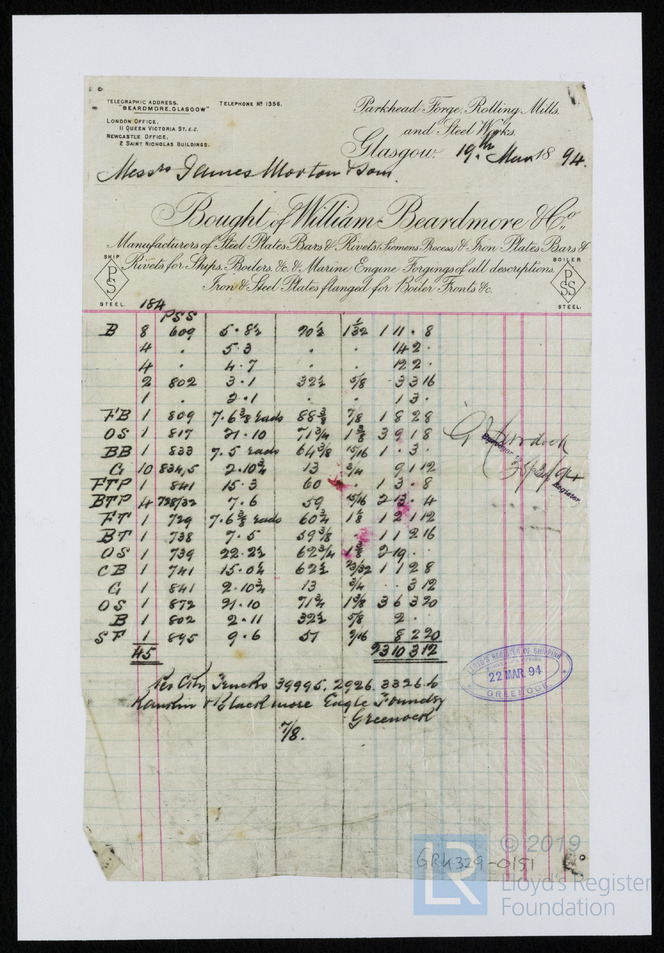 TELEGRAPHIC ADDRESS, TELEPHONE Nº 1356.
"BEARDMORE, GLASGOW"
LONDON OFFICE,
11 QUEEN VICTORIA ST. E.C.
NEWCASTLE OFFICE,
2 SAINT NICHOLAS BUILDINGS.
Parkhead Forge, Rolling Mills,
and Steel Works.
Glasgow, 19th Mar 1894.
Messrs James Morton & Son.
Bought of William Beardmore & Co.
Manufacturers of Steel Plates Bars & Rivets (Siemens Process) & Iron Plates Bars &
Rivets for Ships, Boilers, &c. & Marine Engine Forgings of all descriptions,
Iron & Steel Plates flanged for Boiler Fronts &c.
SHIP PSS STEEL.
BOILER PSS STEEL.
184
PSS
B 8 609 5.8½ 20½ 1 1/32 1 11 . 8
4 . 5.3 . . 14 2 .
4 . 4.7 . . 12 2 .
2 802 3.1 32½ 5/8 . 3 3 16
1 . 2.1 . . 1 3 .
FB 1 809 7.6⅜ rads 88⅜ 7/8 1 8 2 8
OS 1 817 21.10 71¾ 1⅜ 3 9 1 8
BB 1 833 7.5 rads 64⅜ 15/16 1 . 3 .
G 10 834,5 2.10¾ 13 3/4 9 1 12
FTP 1 841 15.3 60 . 1 3 . 8
BTP 4 728/32 7.6 59 15/16 2 3 . 4
FT 1 729 7.6⅜ rads 60¾ 1⅛ 1 2 1 12
BT 1 738 7.5 59⅜ . 1 1 2 16
OS 1 739 22.2½ 62¾ 2 19 .
CB 1 741 15.0½ 62½ 23/32 1 1 2 8
G 1 841 2.10¾ 13 3/4 . . 3 12
OS 1 872 21.10 71¾ 1⅜ 3 6 3 20
B 1 802 2.11 32½ 5/8 2 .
SF 1 895 9.6 51 9/16 8 2 20
45 23 10 3 12
Trucks 39995, 2926, 3326.6
Rankin & Blackmore Eagle Foundry
Greenock
7/8.
LLOYD'S REGISTER OF SHIPPING
22 MAR 94
GREENOCK
GRK329-0151
LR © 2019
Lloyd's Register
Foundation